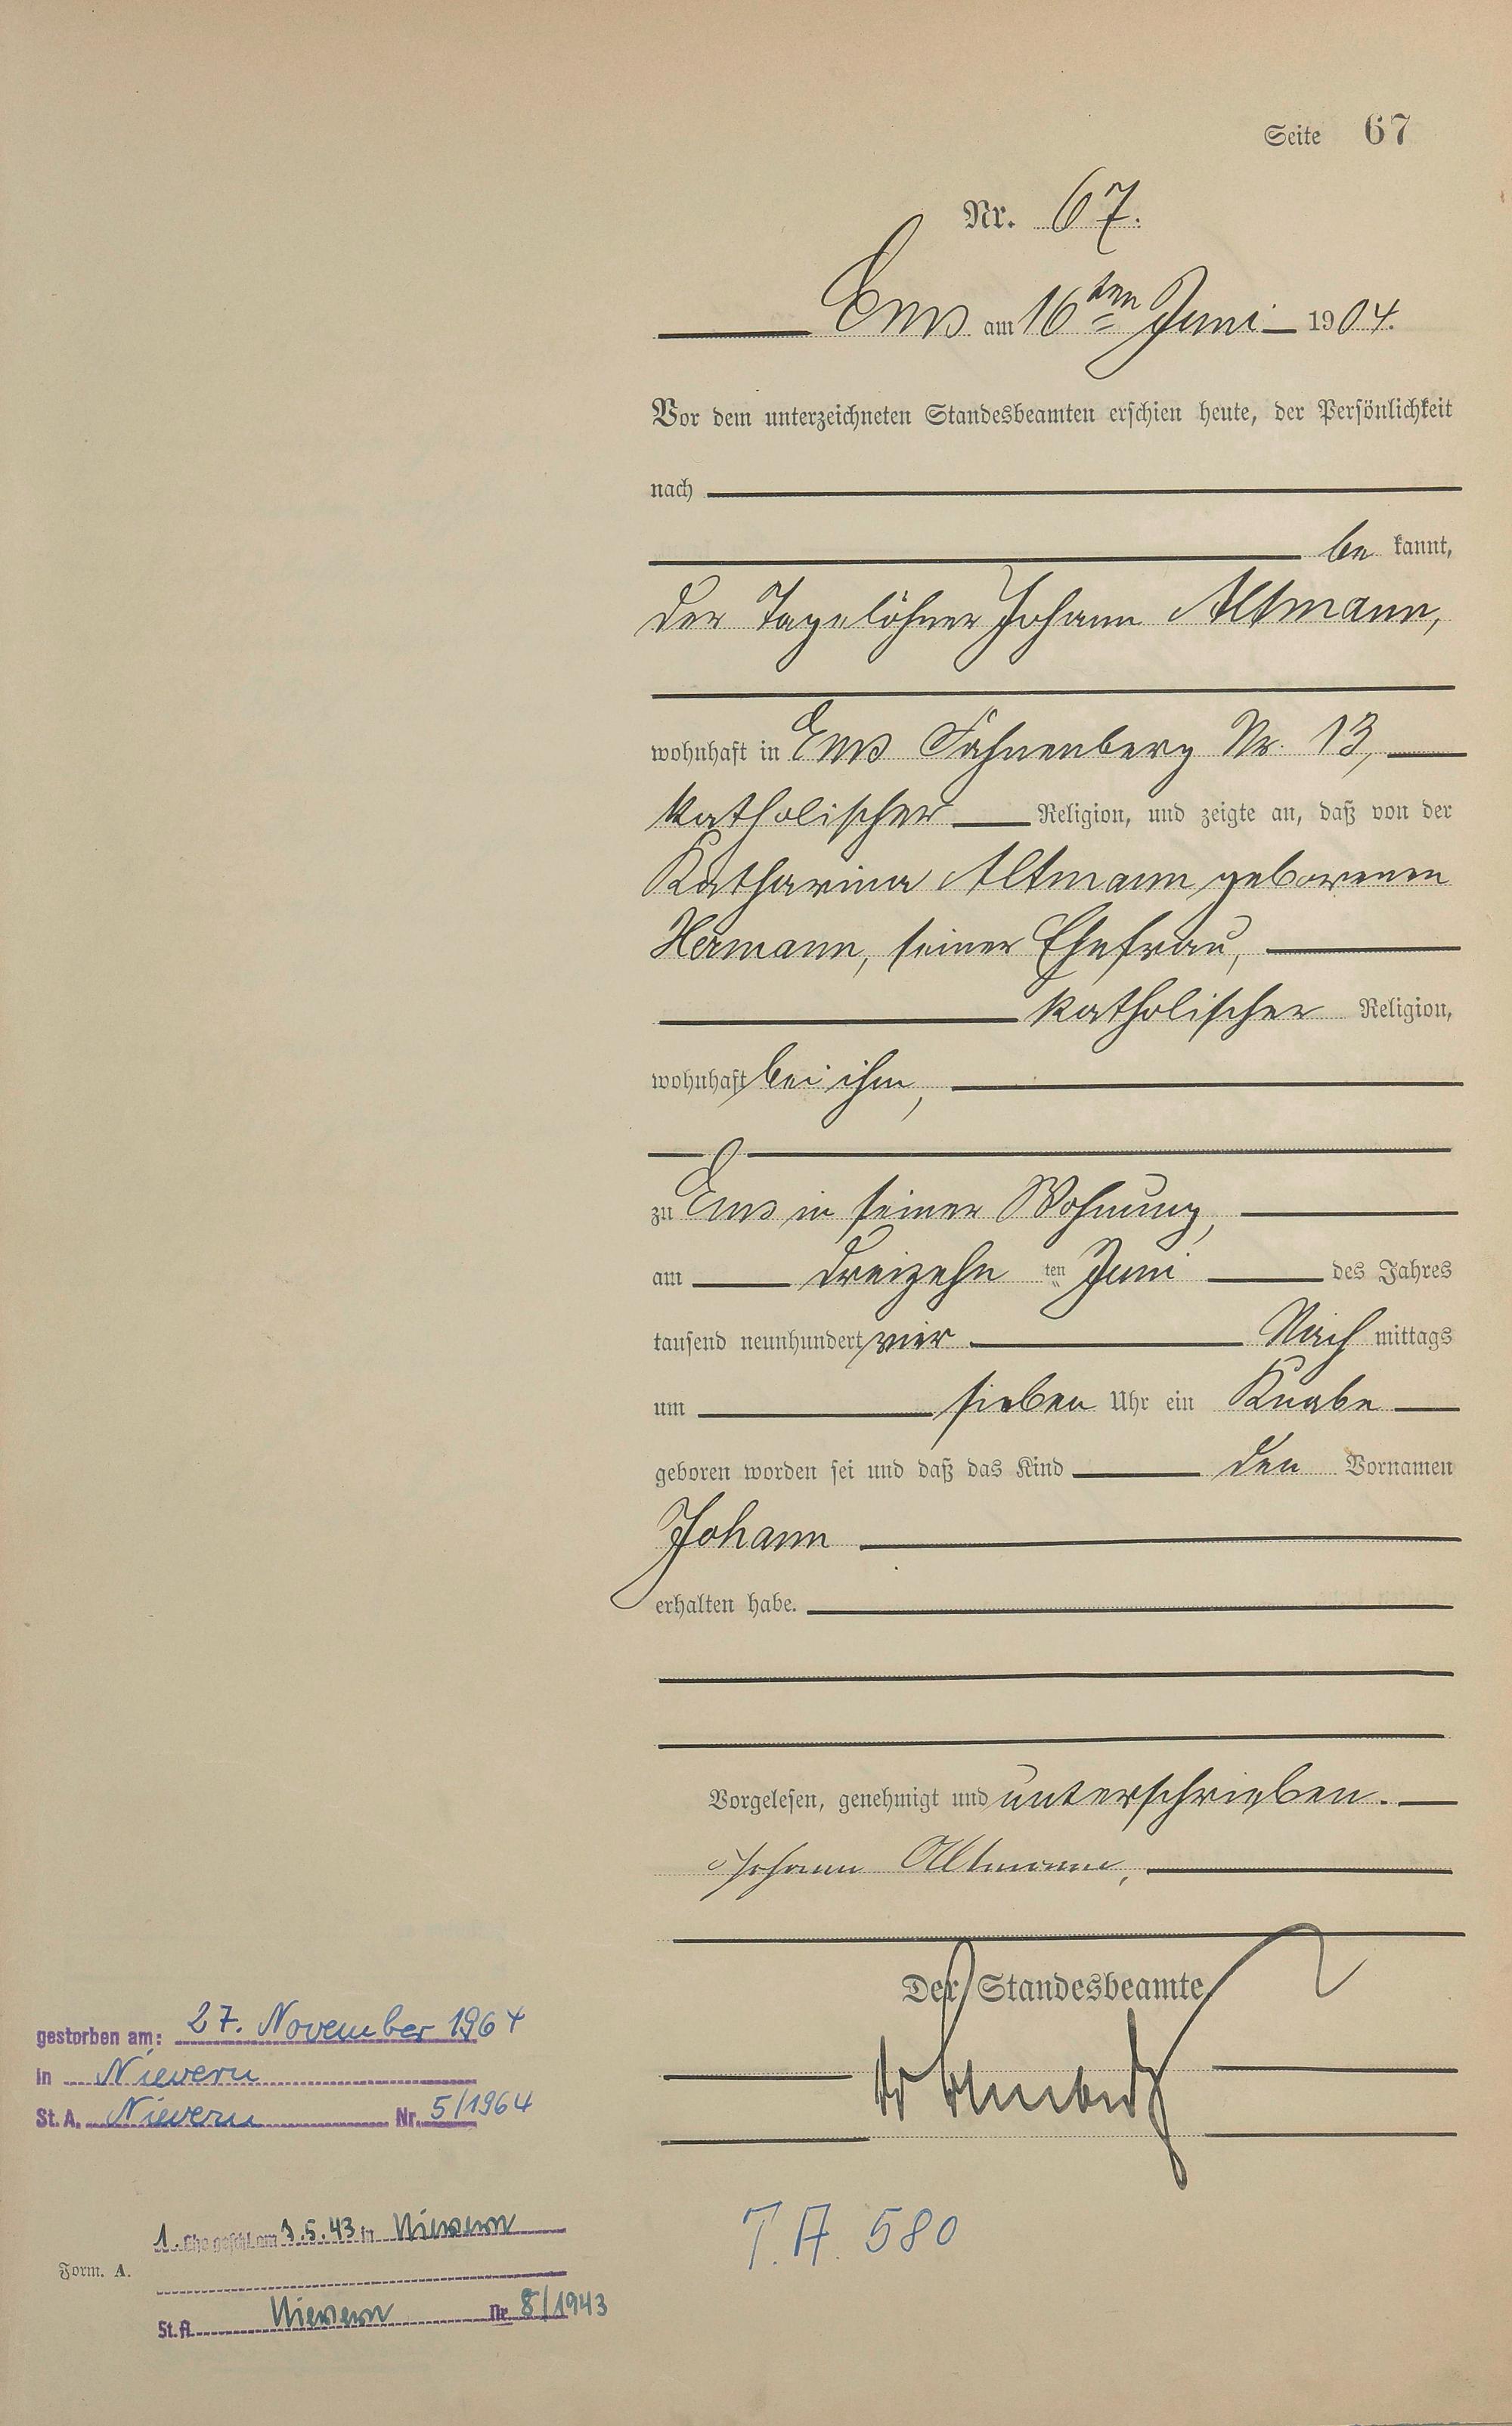 Seite 67
Nr. 67.
Ems am 16ten Juni 1904.
Vor dem unterzeichneten Standesbeamten erschien heute, der Persönlichkeit
nach
be kannt,
der Tagelöhner Johann Altmann,
wohnhaft in Ems Fahnenberg Nr. 13,
katholischer Religion, und zeigte an, daß von der
Katharina Altmann geborenen
Hermann, seiner Ehefrau,
katholischer Religion,
wohnhaft bei ihm,
zu Ems in seiner Wohnung,
am dreizehn ten Juni des Jahres
tausend neunhundert vier Nach mittags
um sieben Uhr ein Knabe
geboren worden sei und daß das Kind den Vornamen
Johann
erhalten habe.
Vorgelesen, genehmigt und unterschrieben.
Johann Altmann,
Der Standesbeamte
gestorben am: 27. November 1964
in Nievern
St. A. Nievern Nr. 5/1964
1. Ehe geschl. am 3.5.43 in Nievern
Form. A.
St. A. Nievern Nr. 8/1943
T. A. 580